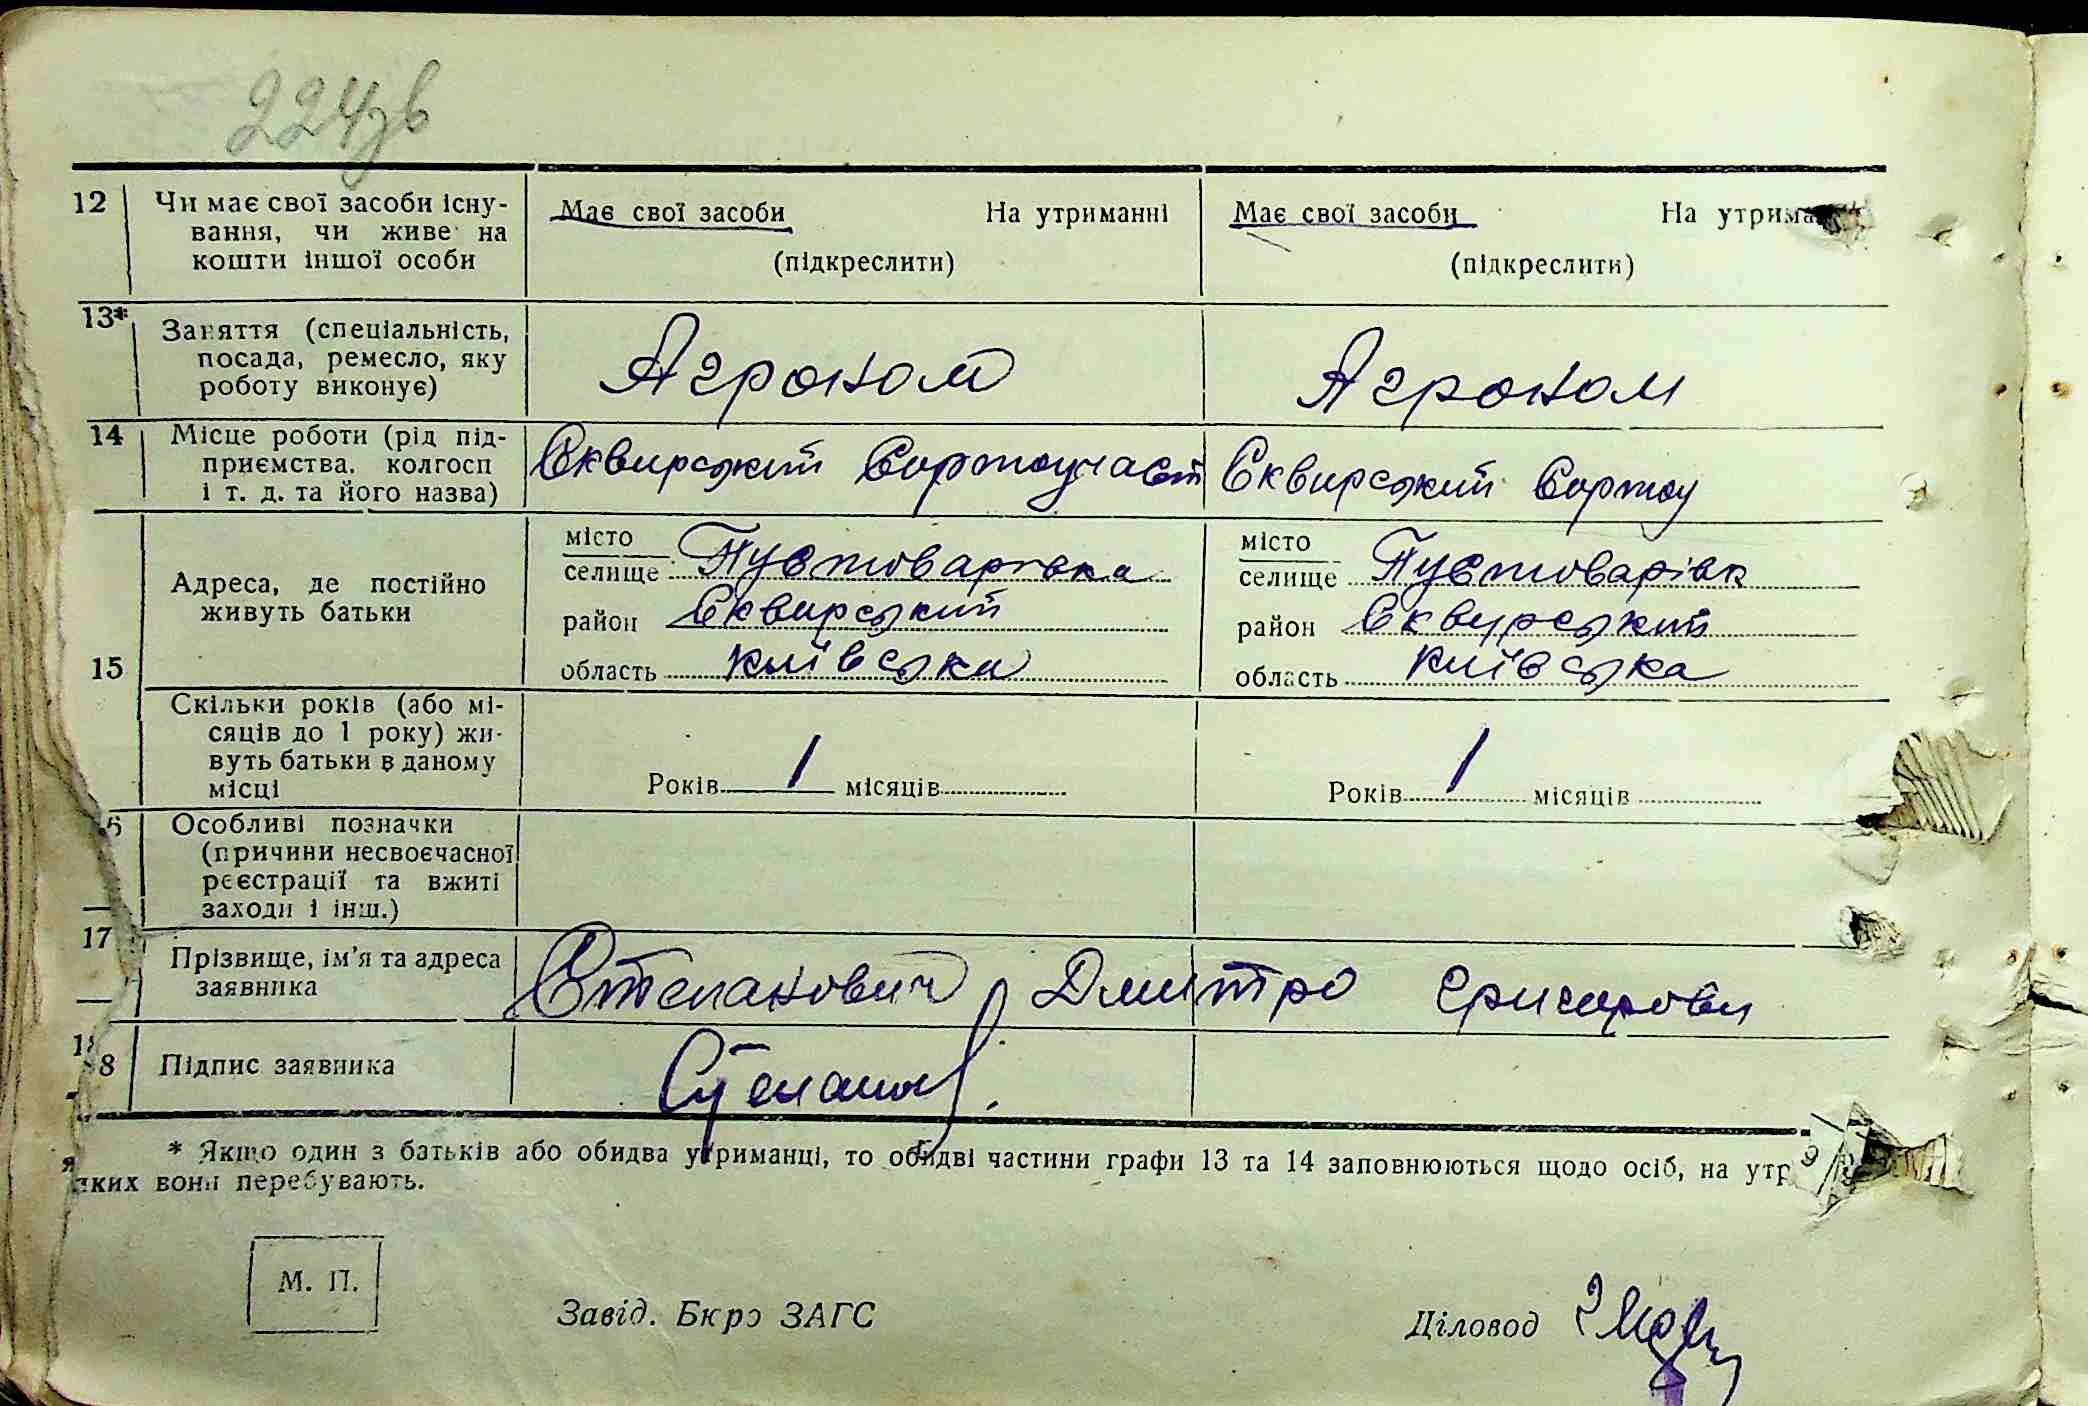 224зв
12 Чи має свої засоби існу- Має свої засоби На утриманні Має свої засоби На утрима
вання, чи живе на
кошти іншої особи (підкреслити) (підкреслити)
13* Заняття (спеціальність,
посада, ремесло, яку Агроном Агроном
роботу виконує)
14 Місце роботи (рід під- Сквирський Сортоучаст Сквирський Сортоу
приємства, колгосп
і т. д. та його назва)
15 Адреса, де постійно
живуть батьки
місто
селище Пустоварівка
район Сквирський
область Київська
місто
селище Пустоварівк
район Сквирський
область Київська
Скільки років (або мі-
сяців до 1 року) жи-
вуть батьки в даному
місці
Років 1 місяців Років 1 місяців
6 Особливі позначки
(причини несвоєчасної
реєстрації та вжиті
заходи і інш.)
17 Прізвище, ім'я та адреса
заявника
Степанович Дмитро
18 Підпис заявника
* Якщо один з батьків або обидва утриманці, то обидві частини графи 13 та 14 заповнюються щодо осіб, на утр
яких вони перебувають.
М. П.
Завід. Бюро ЗАГС Діловод